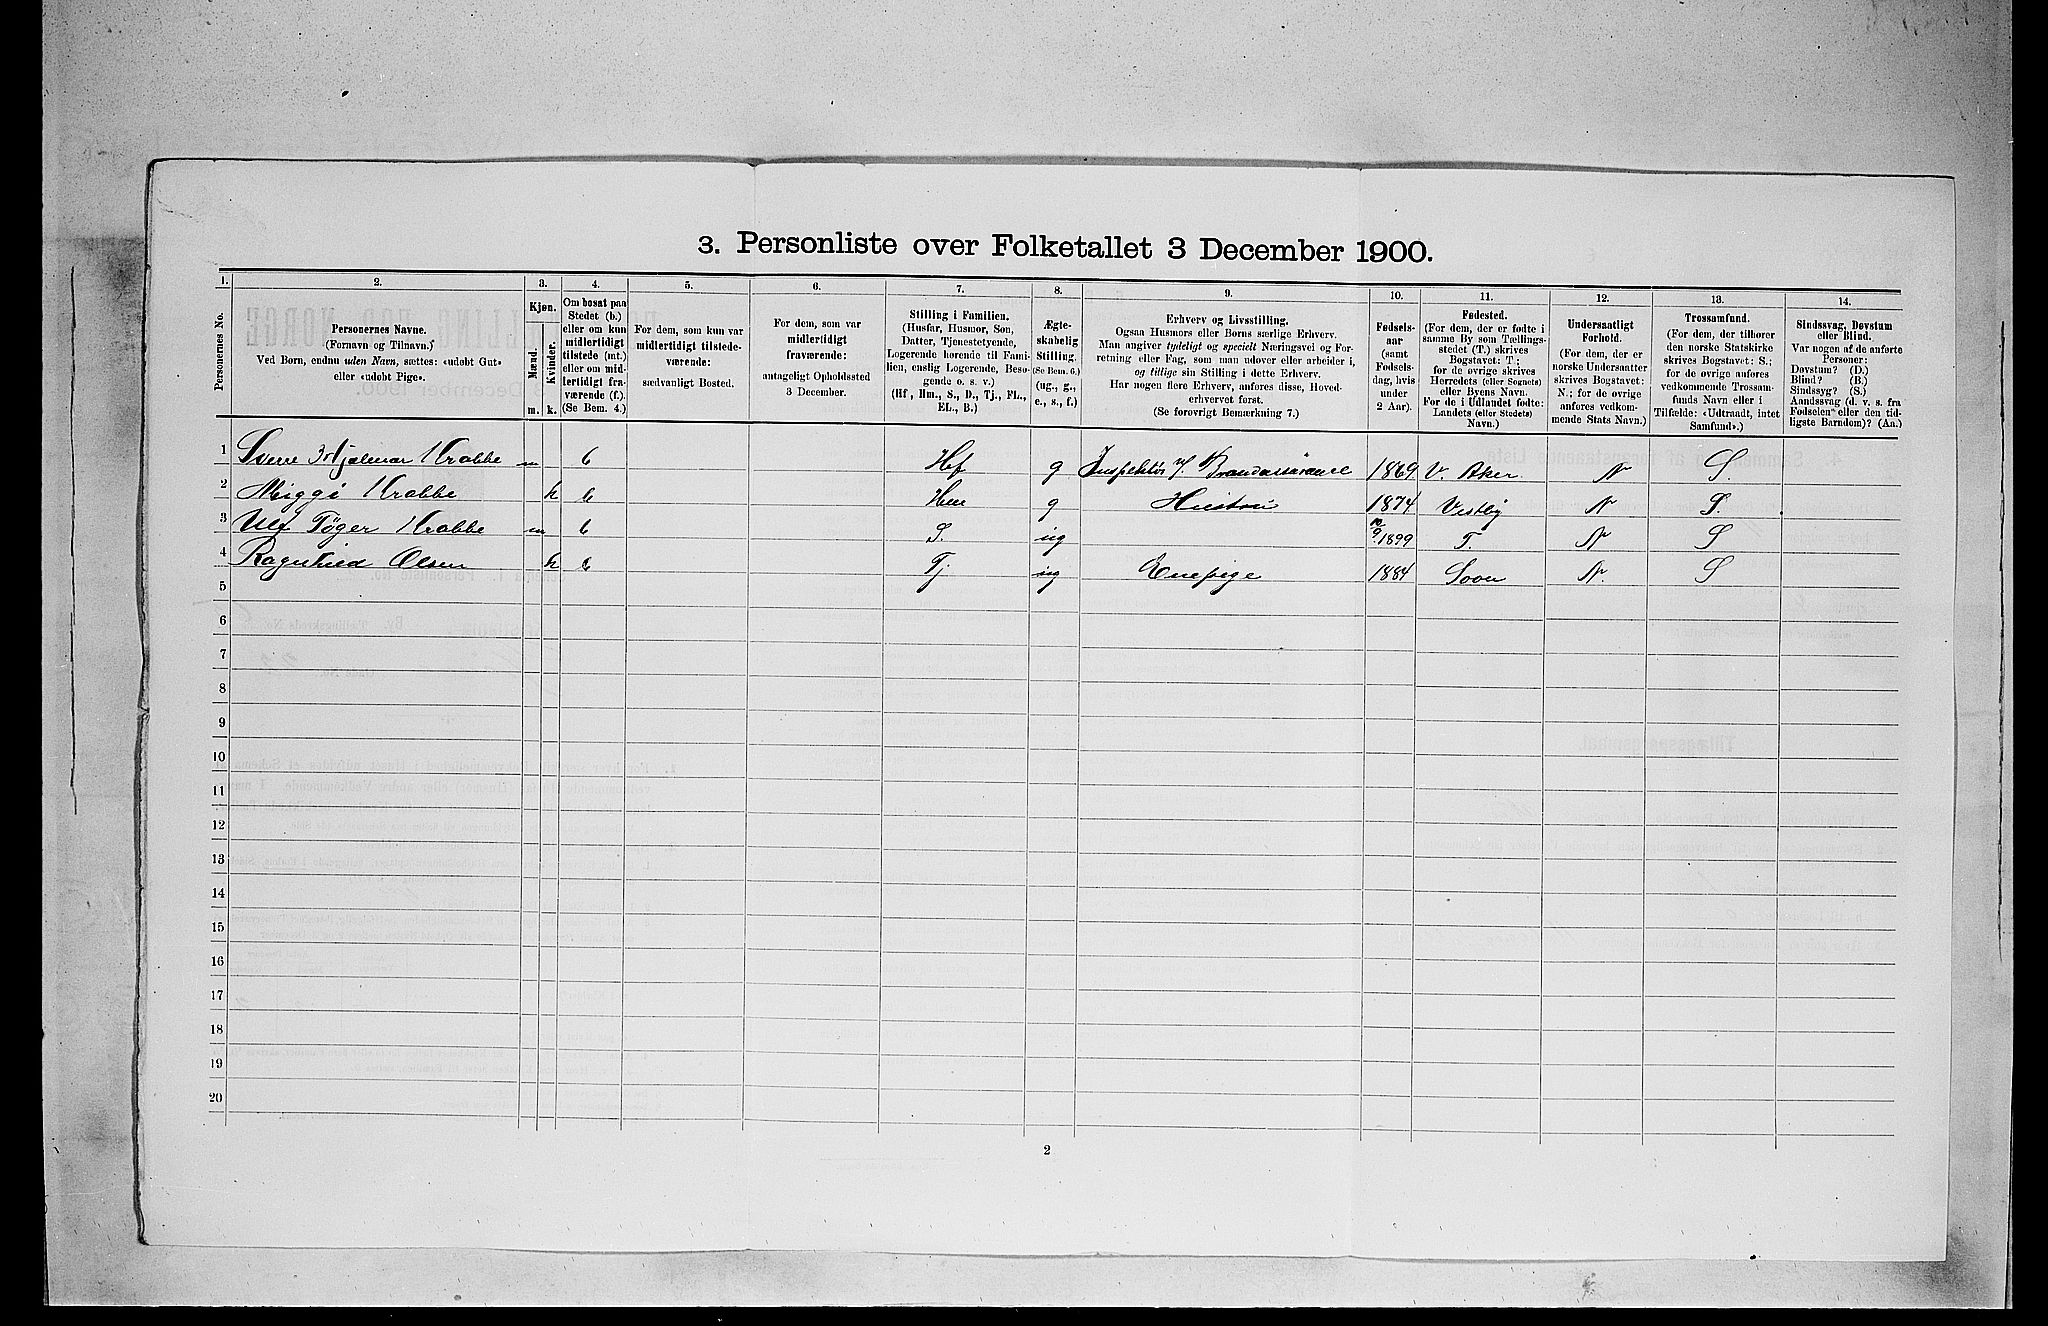 3. Personliste over Folketallet 3 December 1900.
1. 2. 3. 4. 5. 6. 7. 8. 9. 10. 11. 12. 13. 14.
Personernes No.
Personernes Navne.
(Fornavn og Tilnavn.)
Ved Børn, endnu uden Navn, sættes: «udøbt Gut»
eller «udøbt Pige».
Kjøn.
Mænd.
Kvinder.
m. k.
Om bosat paa
Stedet (b.)
eller om kun
midlertidigt
tilstede (mt.)
eller om mid-
lertidigt fra-
værende (f.).
(Se Bem. 4.)
For dem, som kun var
midlertidigt tilstede-
værende:
sædvanligt Bosted.
For dem, som var
midlertidigt
fraværende:
antageligt Opholdssted
3 December.
Stilling i Familien.
(Husfar, Husmor, Søn,
Datter, Tjenestetyende,
Logerende hørende til Fami-
lien, enslig Logerende, Besø-
gende o. s. v.)
(Hf., Hm., S., D., Tj., FL.,
EL., B.)
Ægte-
skabelig
Stilling.
(Se Bem. 6.)
(ug., g.,
e., s., f.)
Erhverv og Livsstilling.
Ogsaa Husmors eller Børns særlige Erhverv.
Man angiver tydeligt og specielt Næringsvei og For-
retning eller Fag, som man udøver eller arbeider i,
og tillige sin Stilling i dette Erhverv.
Har nogen flere Erhverv, anføres disse, Hoved-
erhvervet først.
(Se forøvrigt Bemærkning 7.)
Fødsels-
aar
(samt
Fødsels-
dag, hvis
under
2 Aar).
Fødested.
(For dem, der er fødte i
samme By som Tællings-
stedet (T.) skrives
Bogstavet: T;
for de øvrige skrives
Herredets (eller Sognets)
eller Byens Navn.
For de i Udlandet fødte:
Landets (eller Stedets)
Navn.)
Undersaatligt
Forhold.
(For dem, der er
norske Undersaatter
skrives Bogstavet:
N.; for de øvrige
anføres vedkom-
mende Stats Navn.)
Trossamfund.
(For dem, der tilhører
den norske Statskirke
skrives Bogstavet: S.;
for de øvrige anføres
vedkommende Trossam-
funds Navn eller i
Tilfælde: «Udtraadt, intet
Samfund».)
Sindssvag, Døvstum
eller Blind.
Var nogen af de anførte
Personer:
Døvstum? (D.)
Blind? (B.)
Sindssyg? (S.)
Aandssvag (d. v. s. fra
Fødselen eller den tid-
ligste Barndom)? (Aa.)
1 Sverre Hjalmar Krabbe m b Hf g Inspektör v. Brandassurance 1869 V. Aker N S.
2 Miggi Krabbe k b Hm g Hustru 1874 Vestby N S.
3 Ulf Tøger Krabbe m b S. ug 10/9 1899 T. N S
4 Ragnhild Olsen k b Tj ug Enepige 1884 Soon N. S
5
6
7
8
9
10
11
12
13
14
15
16
17
18
19
20
2